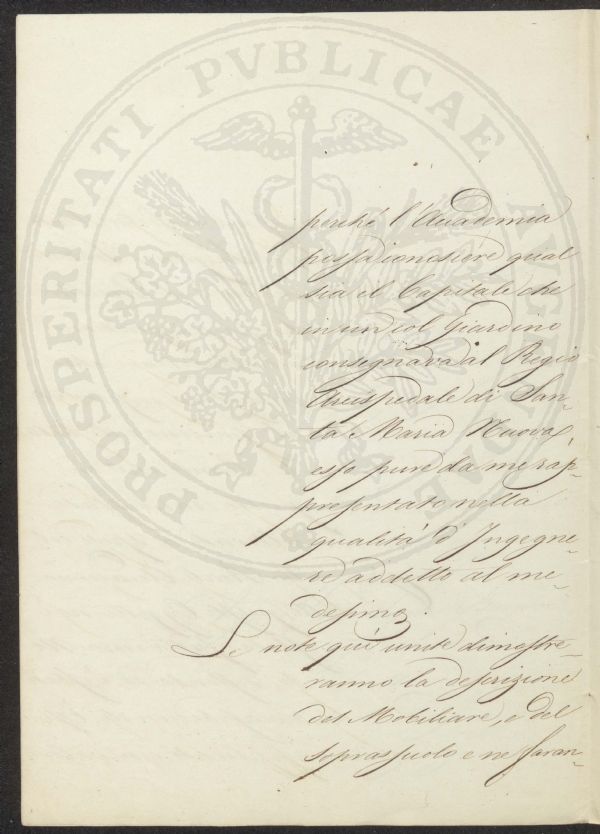 PROSPERITATI PVBLICAE AVGENDAE
perché l'Accademia
possa conoscere qual
sia il Capitale che
in un col Giardino
consegnava al Regio
Arcispedale di San-
ta Maria Nuova,
esso pure da me rap-
presentato nella
qualità d'Ingegne-
re addetto al me-
desimo.
Le note qui unite dimostre-
ranno la descrizione
del Mobiliare, e del
soprassuolo e ne faran-